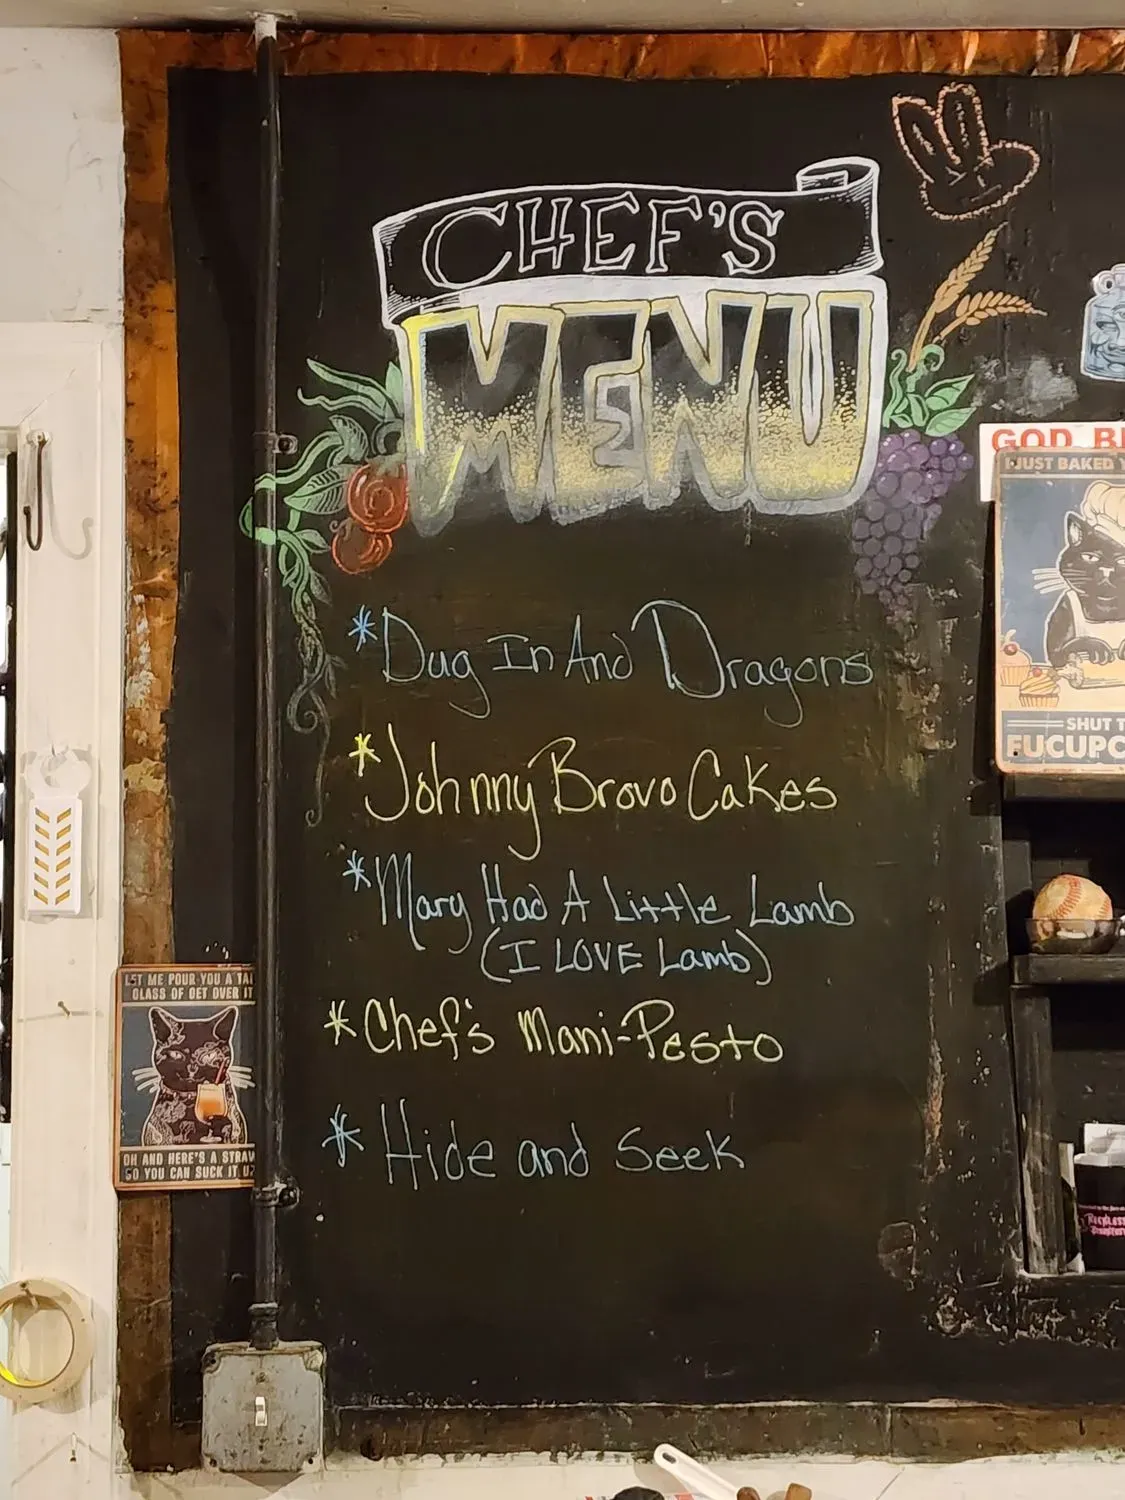 CHEF'S
MENU
*Dug In And Dragons
*Johnny Brovo Cakes
*Mary Had A Little Lamb
(I LOVE Lamb)
*Chef's Mani-Pesto
*Hide and Seek
GOD
JUST BAKED
SHUT
FUCUPC
LET ME POUR YOU A
GLASS OF GET OVER IT
OH AND HERE'S A STRAW
SO YOU CAN SUCK IT